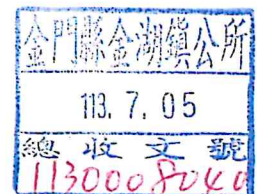 金門縣金湖鎮公所
113. 7. 05
總收文號
1130008040